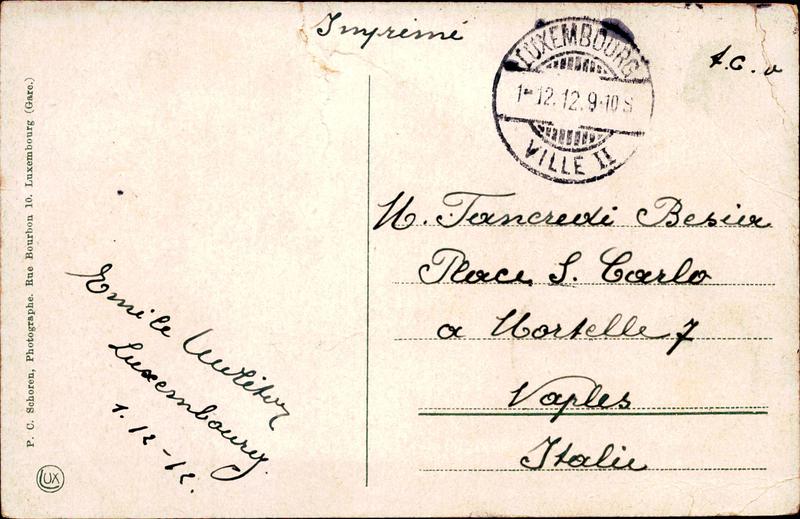 Imprimé
t.c.v
LUXEMBOURG
1-12.12.9-10 S
VILLE II
M. Tancredi Besia
Place S. Carlo
a Mortelle 7
Naples
Italie
Emile
Luxembourg
1.12-12.
P. C. Schoren, Photographe. Rue Bourbon 10. Luxembourg (Gare.)
LUX